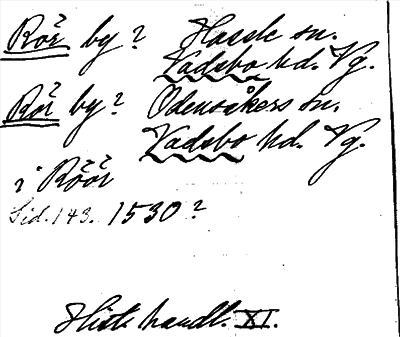 Rör by? Hassle sn.
Vadsbo hd. Vg.
Rör by? Odensåkers sn.
Vadsbo hd. Vg.
i Röör
Sid. 143. 1530?
Hist. handl. XI.